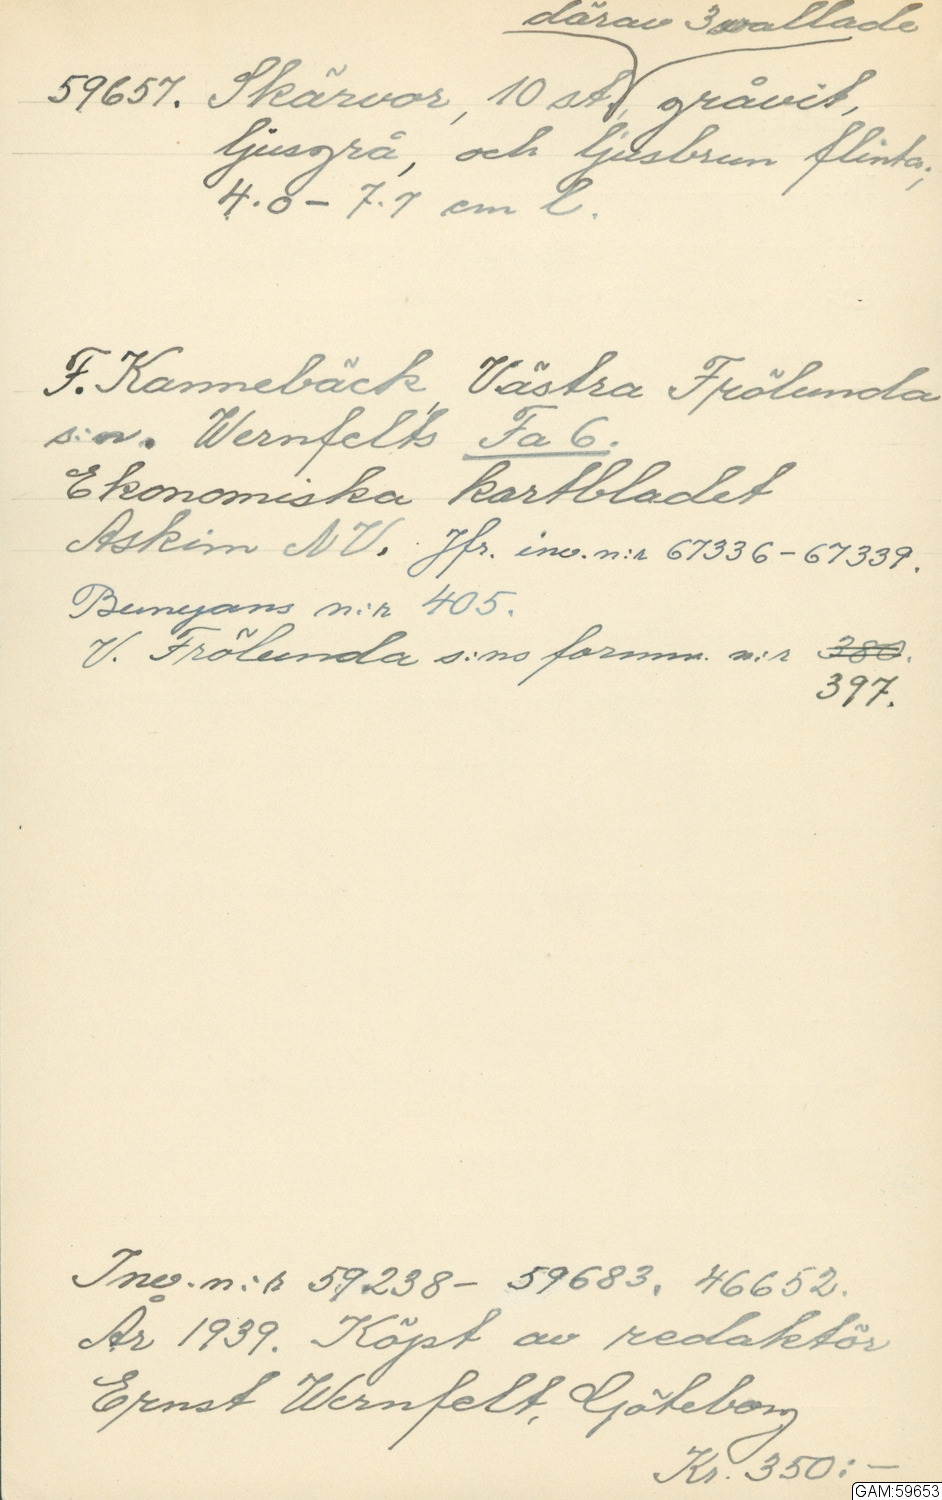 därav 3 svallade
59657. Skärvor, 10 st., gråvit,
ljusgrå, och ljusbrun flinta;
4.0 - 7.7 cm l.
F. Kannebäck, Västra Frölunda
s:n. Wernfelts Fa 6.
Ekonomiska kartbladet
Askim NV. Jfr. inv.n:r 67336-67339.
Bunyans n:r 405.
V. Frölunda s:ns fornm. n:r 380.
397.
Inv.n:r 59238- 59683, 46652.
År 1939. Köpt av redaktör
Ernst Wernfelt, Göteborg
Kr. 350:-
GAM:59653